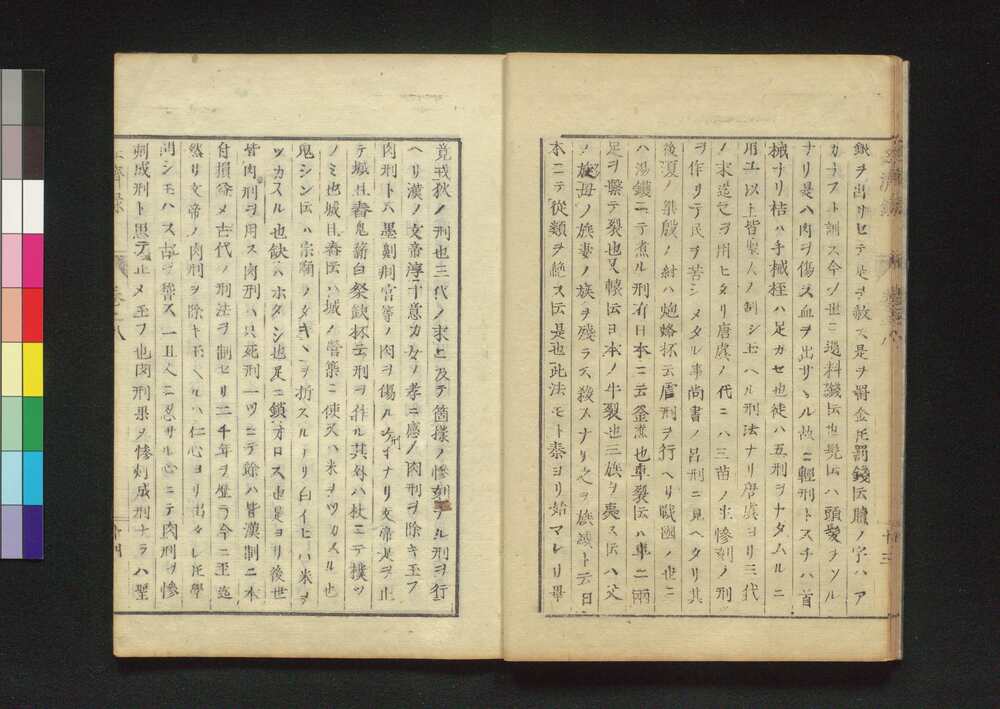 鉄ヲ出サセテ是ヲ赦ス是ヲ罰金圧罰錢伝贖ノ字ハア
カナフト訓ス今ノ世ニ過料錢伝也髡伝ハ頭髪ヲソル
ナリ是ハ肉ヲ傷ス血ヲ出サヽル故ニ輕刑トスチハ首
械ナリ梏ハ手械桎ハ足カセ也徒ハ五刑ヲナタムルニ
用ユ以上皆聖人ノ制シ玉ヘル刑法ナリ唐虞ヨリ三代
ノ末迄之ヲ用ヒタリ唐虞ノ代ニハ三苗ノ主惨刻ノ刑
ヲ作リテ民ヲ苦シメタル事尚書ノ呂刑ニ見ヘタリ其
後夏ノ桀殷ノ紂ハ炮烙杯云虐刑ヲ行ヘリ戰國ノ世ニ
ハ湯鑊ニテ煮ル刑有日本ニ云釜煮也車裂伝ハ車ニ兩
足ヲ繋テ裂也又轘伝日本ノ牛裂也三族ヲ夷ス伝ハ父
ノ族母ノ族妻ノ族ヲ殘ラス殺スナリ之ヲ族滅ト云日
本ニテ從類ヲ絶ス伝是也此法モト秦ヨリ始マレリ畢
竟戎狄ノ刑也三代ノ末ニ及テ箇様ノ惨刻ナル刑ヲ行
ヘリ漢ノ文帝淳于意カ女ノ孝ニ感ノ肉刑ヲ除キ玉フ
肉刑トハ墨劓剕宮等ノ肉ヲ傷ル刑ナリ文帝是ヲ止
テ城旦舂鬼薪白粲鈦杯云刑ヲ作ル其外ハ杖ニテ撲ツ
ノミ也城旦舂伝ハ城ノ營築ニ使ヌハ米ヲツカスル也
鬼シン伝ハ宗廟ノタキヽヲ折スルナリ白イヒハ米ヲ
ツカスル也鈦ハホタシ也足ニ鎖ヲオロス也是ヨリ後世
皆肉刑ヲ用ス肉刑ハ只死刑一ツニテ餘ハ皆漢制ニ本
自損益メ古代ノ刑法ヲ制セリ二千年ヲ歴テ今ニ至迄
然リ文帝ノ肉刑ヲ除キ玉ヘルハ仁心ヨリ出タレ圧學
問シモハス古ヲ替ス一旦人ニ忍サル心ニテ肉刑ヲ惨
刻成刑ト思テ止メ玉フ也肉刑果ヲ惨刻成刑ナラハ聖